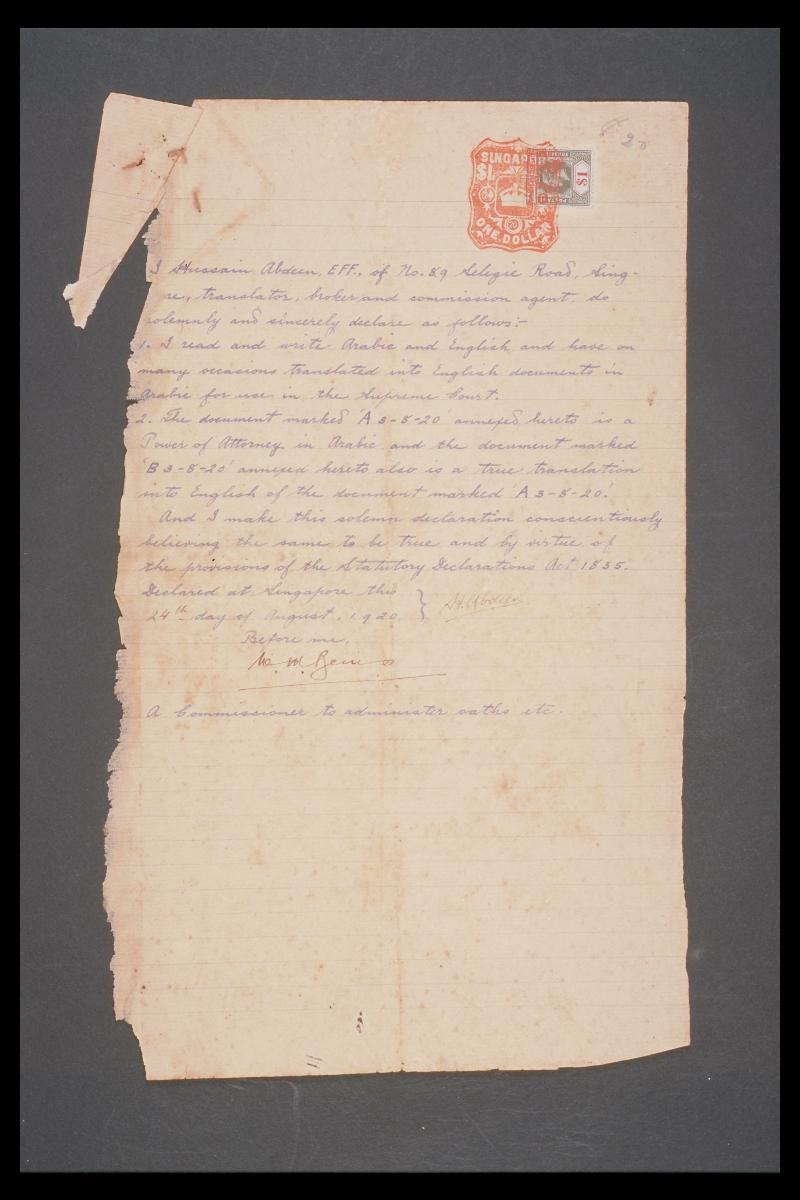 20
SINGAP
$1
20
ONE DOLLAR
$1
I Hussain Abdeen, EFF., of No. 89 Selegie Road, Sing-
re, translator, broker and commission agent, do
solemnly and sincerely declare as follows:-
1. I read and write Arabic and English and have on
many occasions translated into English documents in
Arabic for use in the Supreme Court.
2. The document marked 'A 3-8-20' annexed hereto is a
Power of Attorney in Arabic and the document marked
'B 3-8-20' annexed hereto also is a true translation
into English of the document marked 'A 3-8-20'.
And I make this solemn declaration conscientiously
believing the same to be true and by virtue of
the provisions of the Statutory Declarations Act 1835.
Declared at Singapore this
24th day of August, 1920 } H. Abdeen
Before me,
A Commissioner to administer oaths etc.